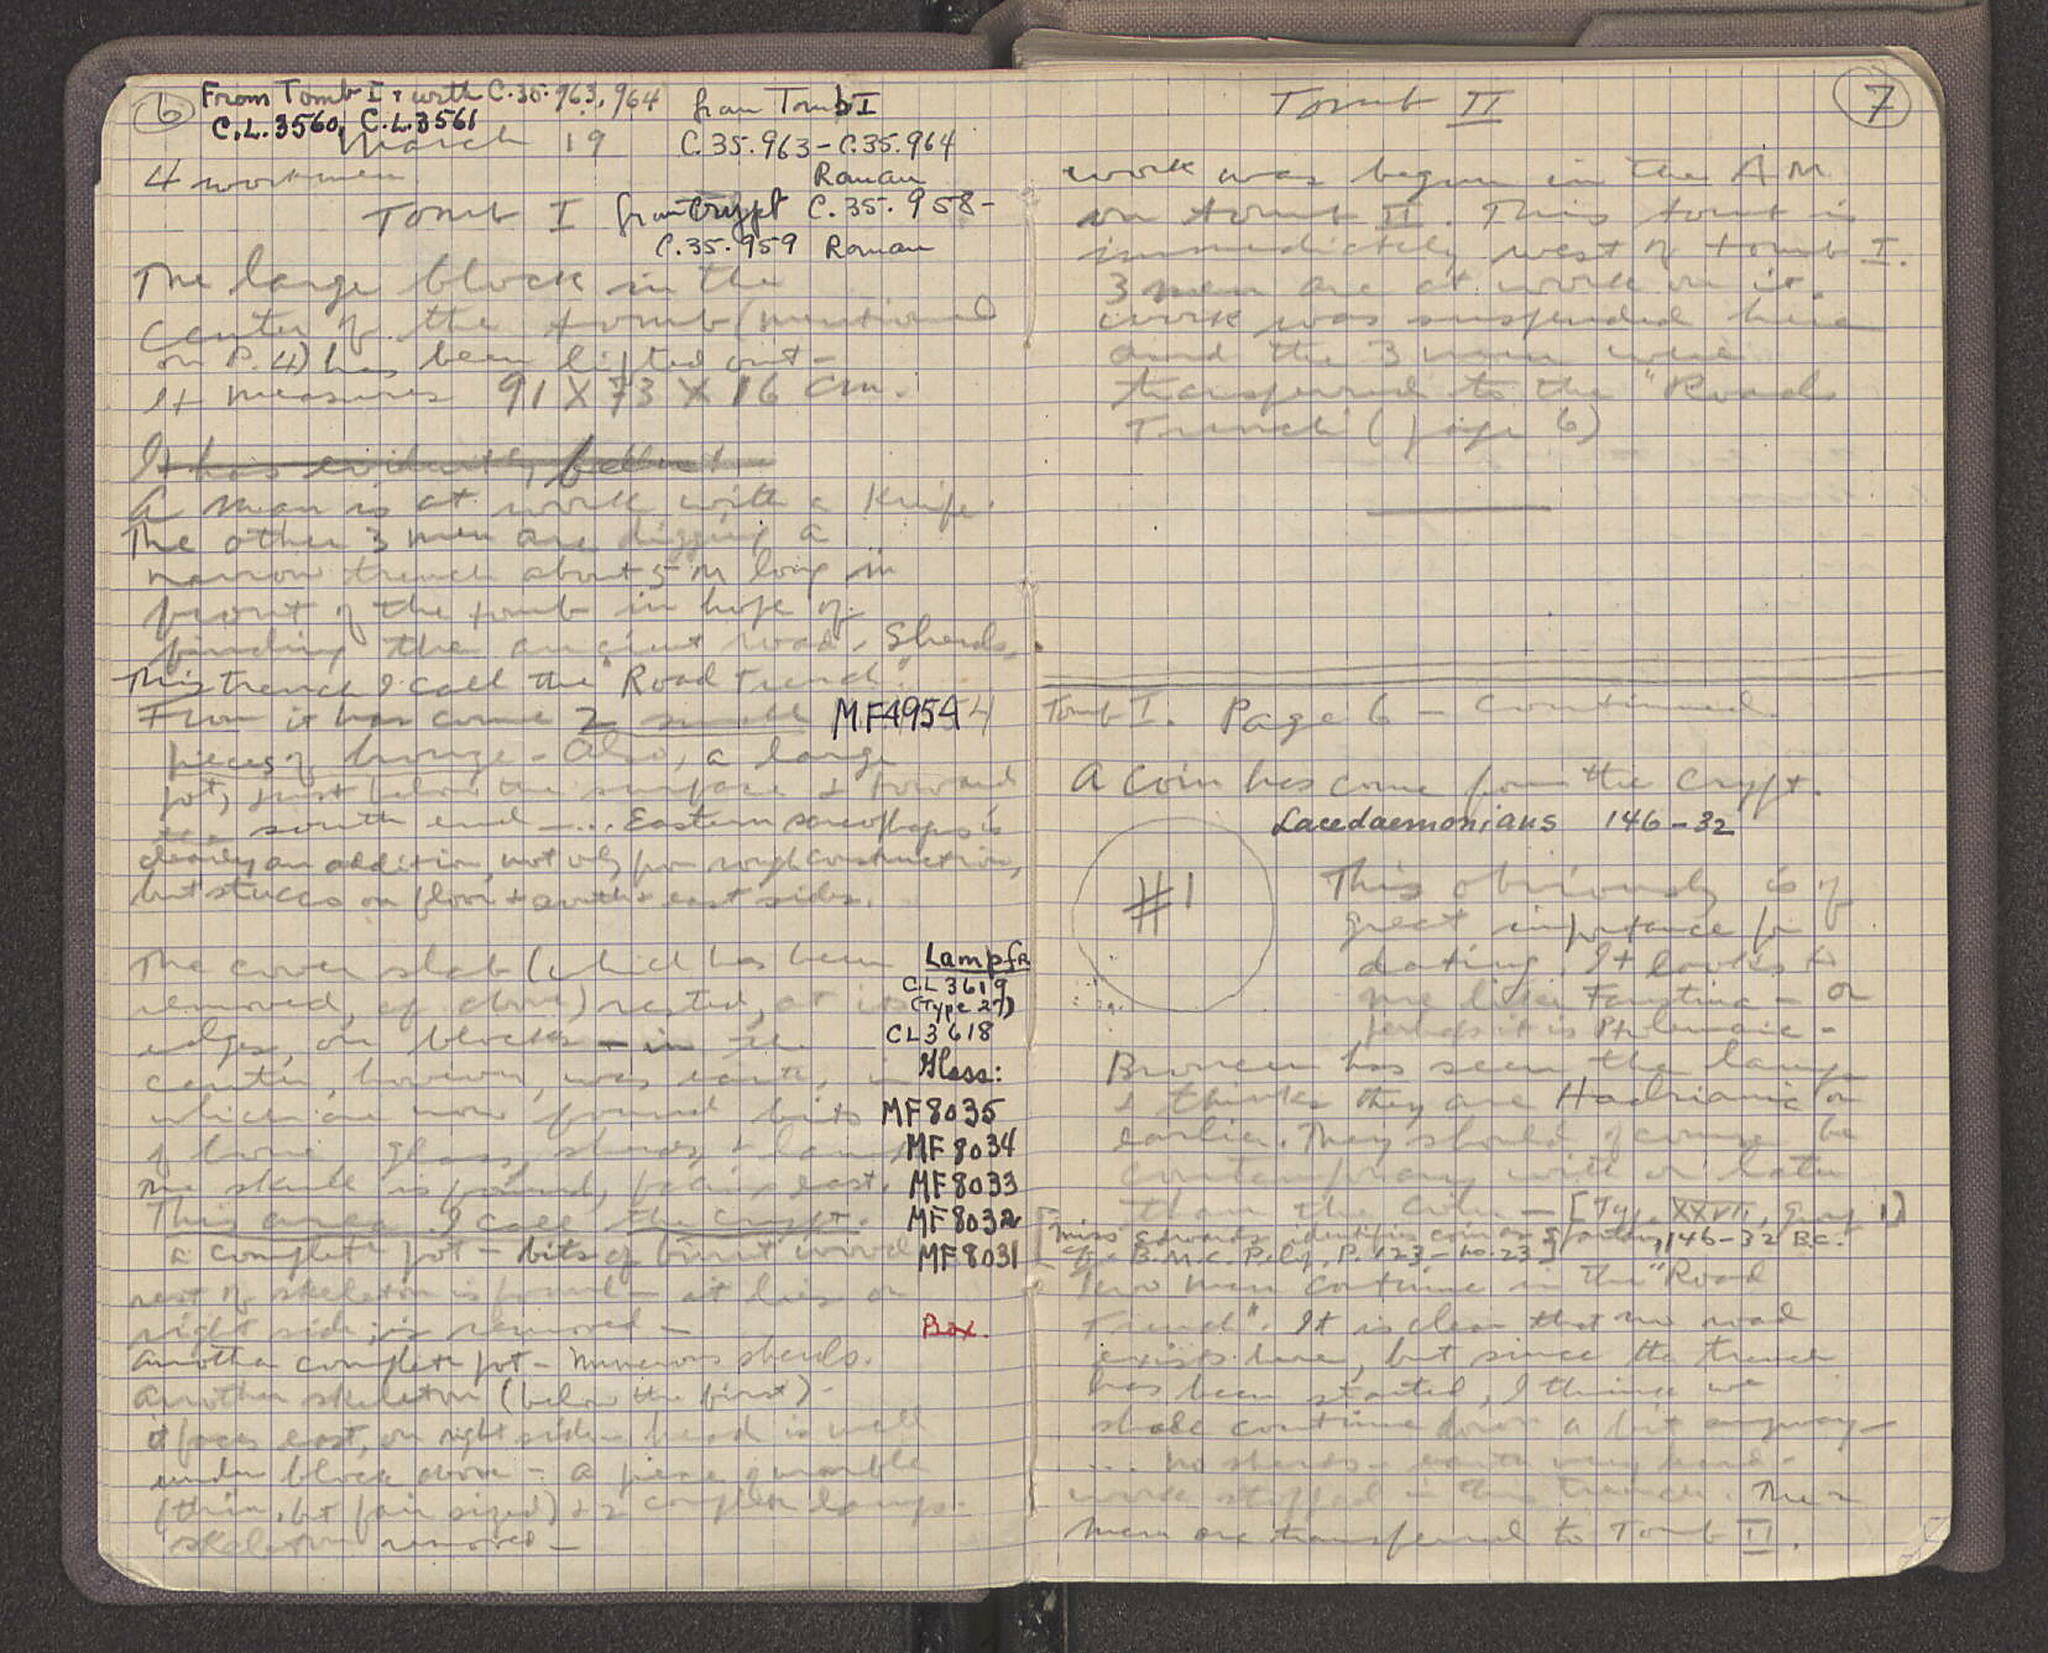 6
From Tomb I, with C.35.963, 964
C.L.3560, C.L.3561
from Tomb I
C.35.963-C.35.964
Roman
March 19
4 workmen
Tomb I
from Crypt C.35.958-
C.35.959 Roman
The large block in the
center of the tomb (mentioned
on P. 4) has been lifted out -
It measures 91 X 73 X 16 cm.
It has evidently fallen
A man is at work with a knife.
The other 3 men are digging a
narrow trench about 5 m long in
front of the tomb in hope of
finding the ancient road. Sherds.
This trench I call the "Road Trench".
From it has come 2 small
MF4954
pieces of bronze - Also, a large
pot, just below the surface & toward
the south end - ... Eastern sarcophagus is
clearly an addition, not only from rough construction,
but stucco on floor & south & east sides.
The cover slab (which has been
removed, cf above) rested, at its
edges, on blocks - in the
center, however, was earth, in
which are now found bits
of bone glass, sherds, & lamps
The skull is found, facing east.
This area I call the crypt.
a complete pot - bits of burnt wood
rest of skeleton is found - it lies on
right side; is removed -
another complete pot - numerous sherds.
another skeleton (below the first) -
it faces east, on right side - head is well
under block above - a piece of marble
(thin, but fair sized) & 2 complete lamps.
skeleton removed -
Lamp fr
CL 3619
(Type 27)
CL3618
Glass:
MF8035
MF8034
MF8033
MF8032
MF8031
Box.
7
Tomb II
work was begun in the AM
on tomb II. This tomb is
immediately west of tomb I.
3 men are at work on it.
work was suspended here
and the 3 men were
transferred to the "Road
Trench" (page 6)
Tomb I. Page 6 - Continued.
A coin has come from the crypt.
Lacedaemonians 146-32
#1
This obviously is of
great importance for
dating. It looks to
me like Faustina - or
perhaps it is Ptolemaic -
Broneer has seen the lamps
& thinks they are Hadrianic or
earlier. They should of course be
contemporary with or later
than the coin - [Type XXVII, group 1]
[Miss Edwards identifies coin as Spartan, 146-32 B.C.
cf. B.M.C. Pelop. P. 123 - no. 23]
Two men continue in the "Road
Trench". It is clear that no road
exists here, but since the trench
has been started, I think we
shall continue down a bit anyway -
... no sherds - earth very hard -
work stopped in this trench. The 2
men are transferred to Tomb II.